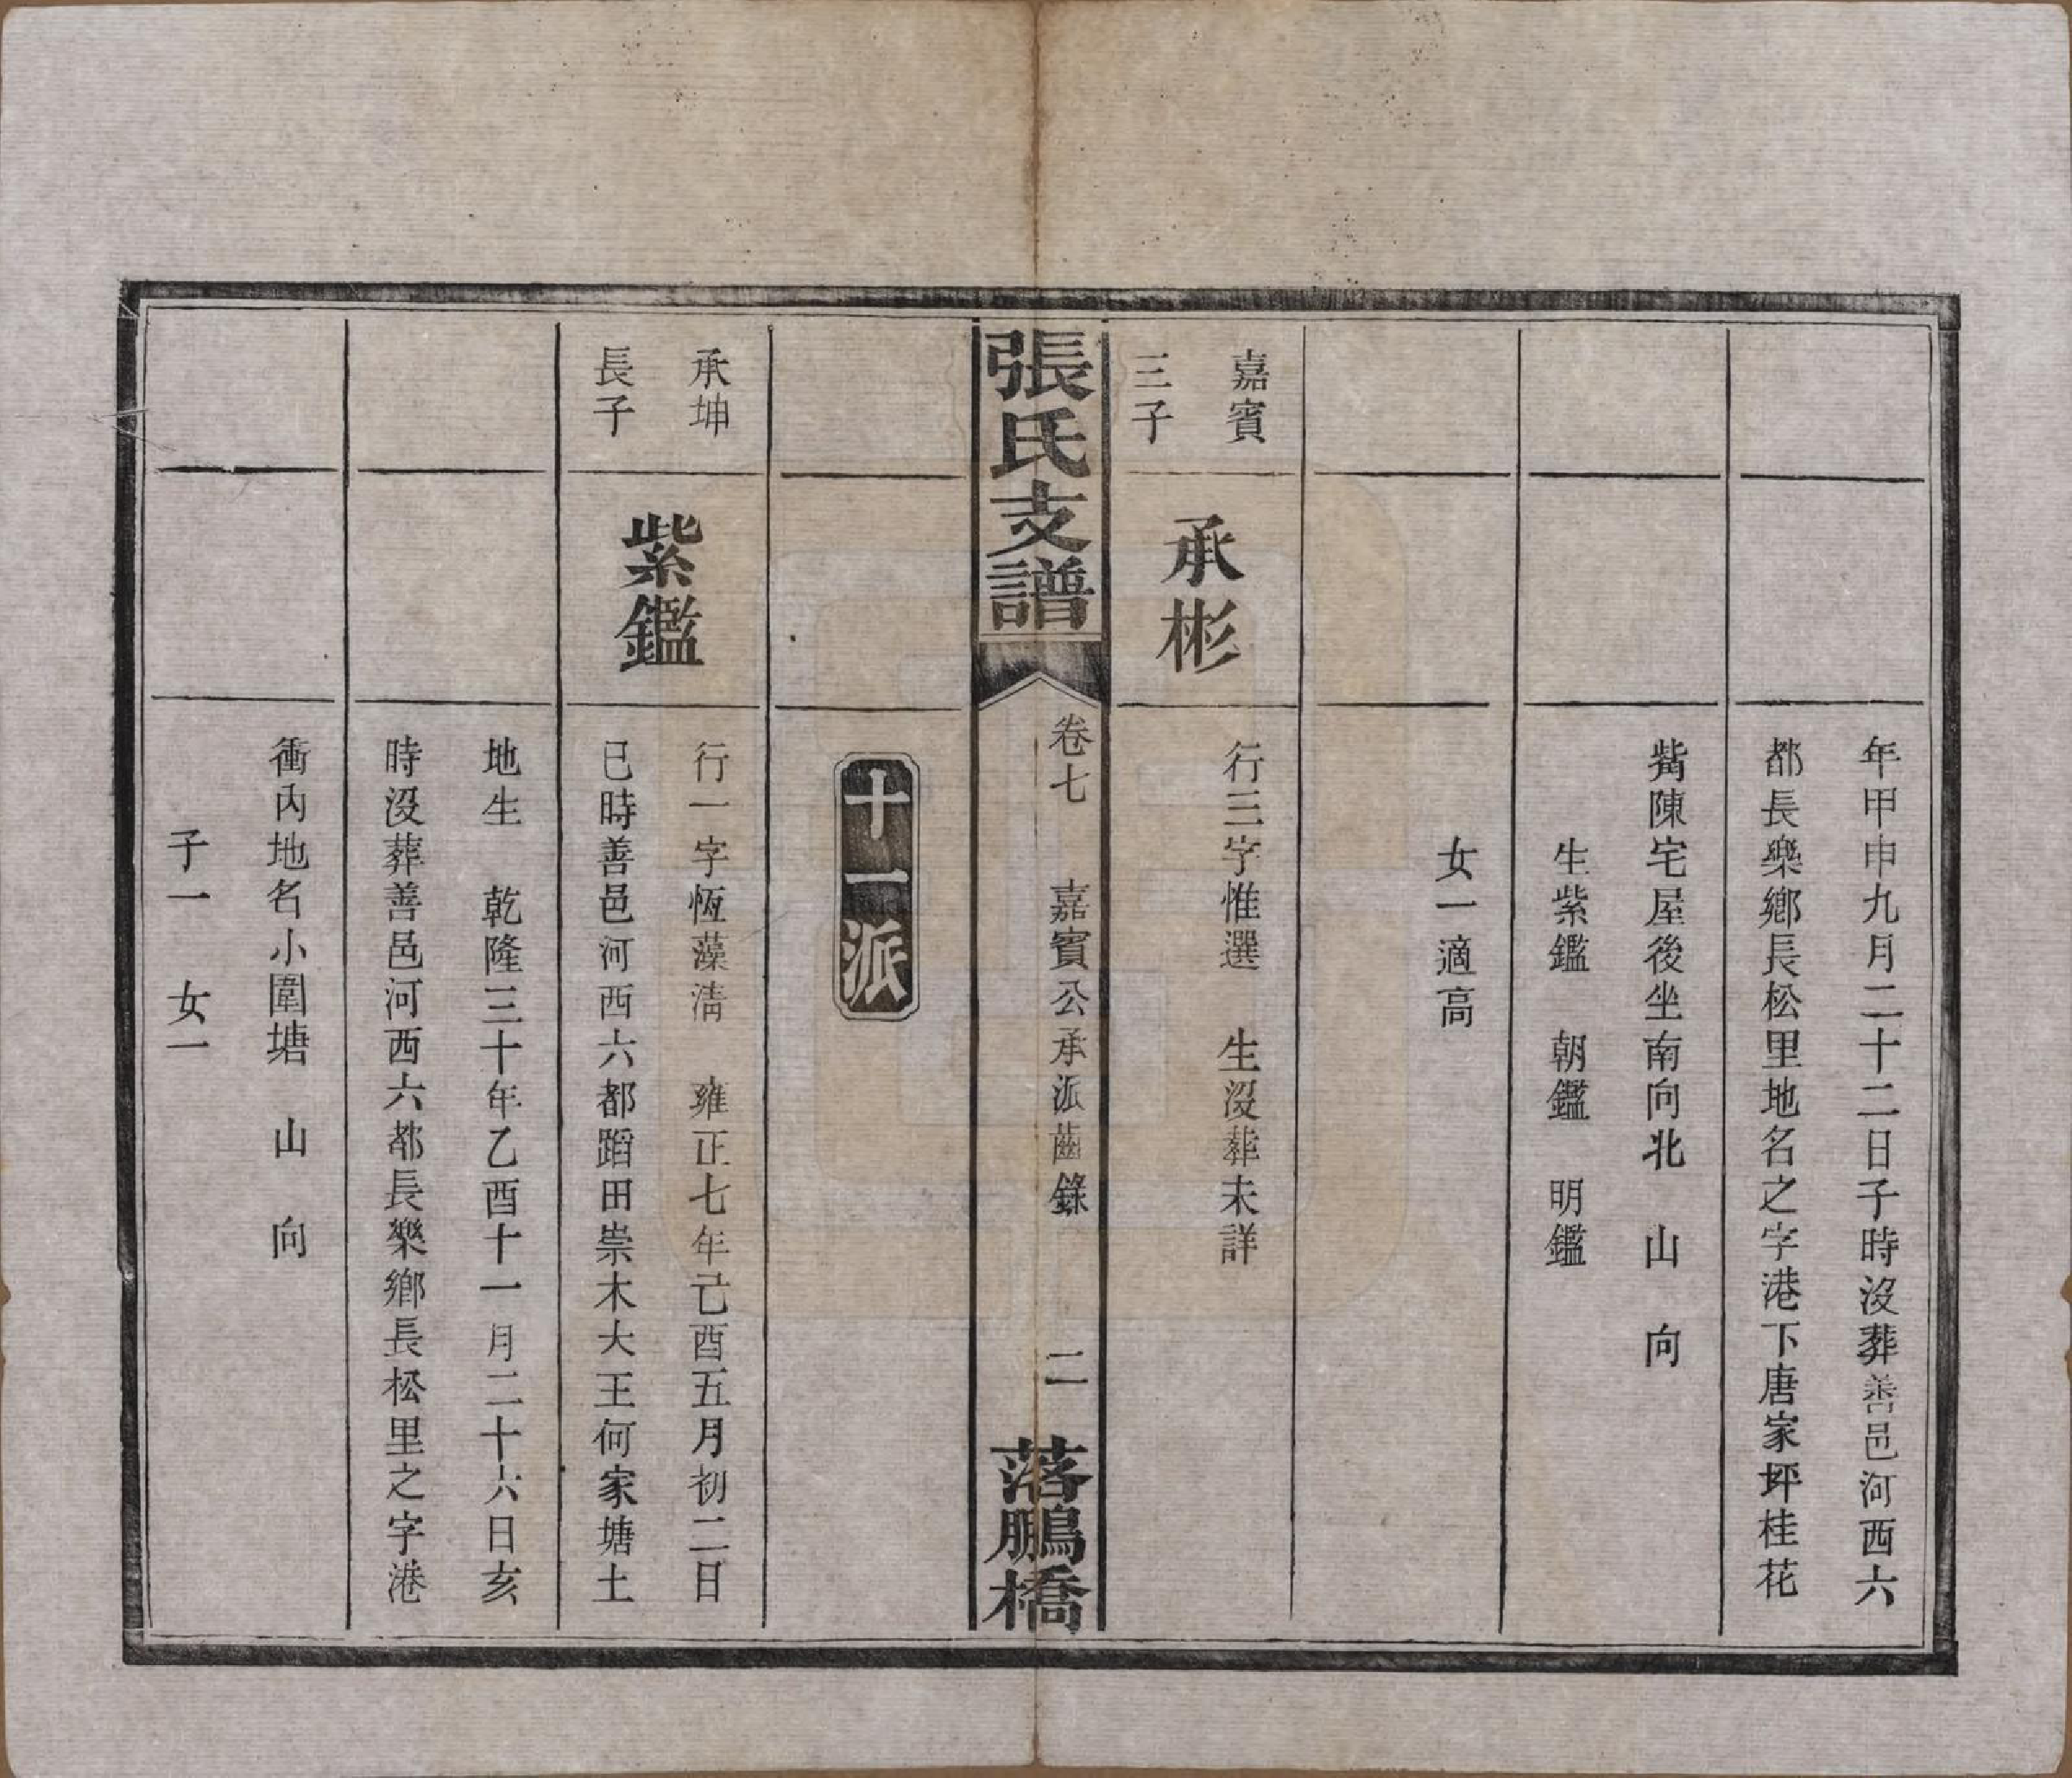 年甲申九月二十二日子時沒葬善邑河西六
都長樂鄉長松里地名之字港下唐家坪桂花
觜陳宅屋後坐南向北　山　向
生紫鑑　朝鑑　明鑑
女一適高
嘉賓
三子
承彬
行三字惟選　生沒葬未詳
張氏支譜
卷七　嘉賓公承派齒錄　二
落鵬橋
十一派
承坤
長子
紫鑑
行一字恆藻淸　雍正七年己酉五月初二日
巳時善邑河西六都蹈田崇木大王何家塘土
地生　乾隆三十年乙酉十一月二十六日亥
時沒葬善邑河西六都長樂鄉長松里之字港
衝內地名小圍塘　山　向
子一　女一